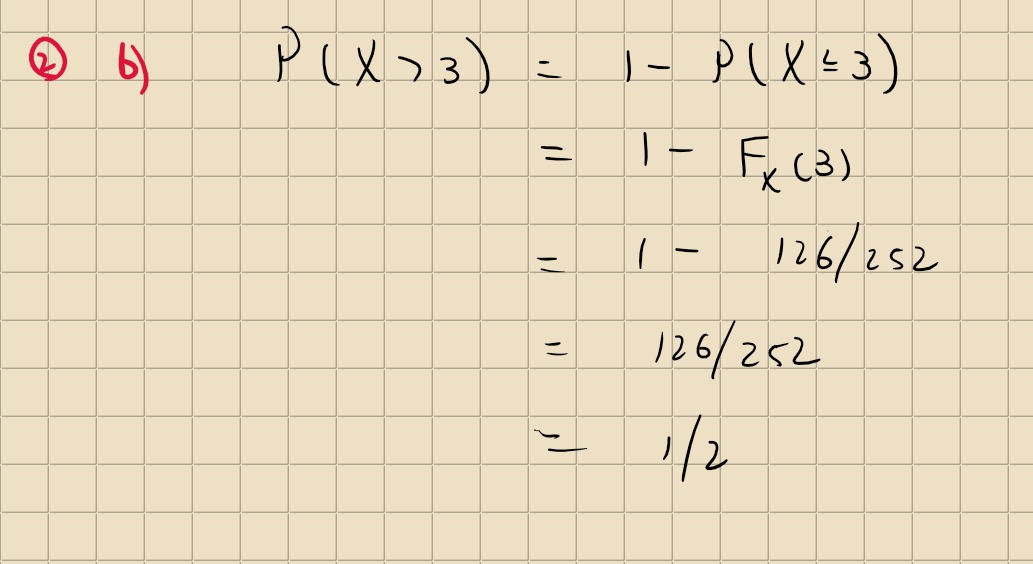 ② b) P(X > 3) = 1 - P(X ≤ 3)
= 1 - Fₓ(3)
= 1 - 126/252
= 126/252
= 1/2